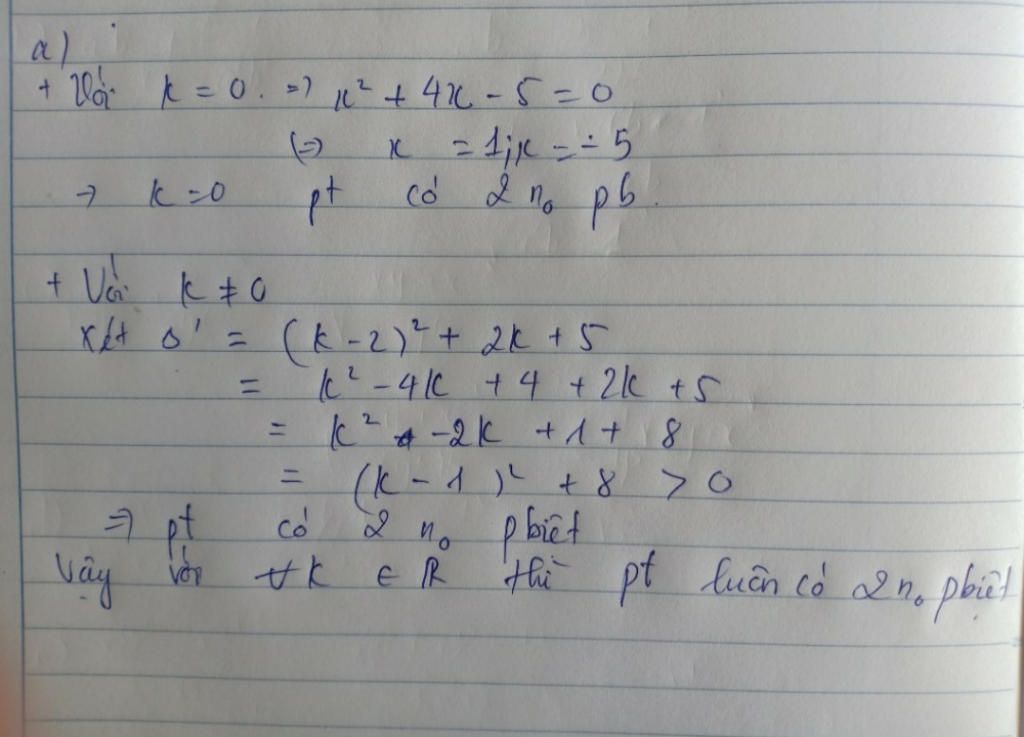 a)
+ Với k = 0. => x² + 4x - 5 = 0
(=> x = 1; x = - 5
-> k = 0 pt có 2 n₀ pb.
+ Với k ≠ 0
Xét Δ' = (k - 2)² + 2k + 5
= k² - 4k + 4 + 2k + 5
= k² - 2k + 1 + 8
= (k - 1)² + 8 > 0
=> pt có 2 n₀ pbiệt
Vậy với ∀k ∈ R thì pt luôn có 2 n₀ pbiệt